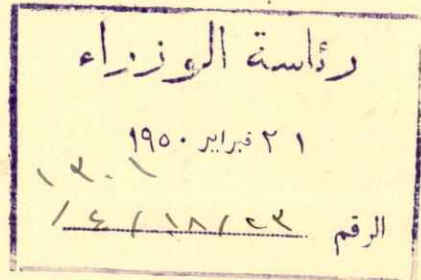 رئاسة الوزراء
٢١ فبراير ١٩٥٠
١٣٠١
الرقم ٢٣/١٨/٤/